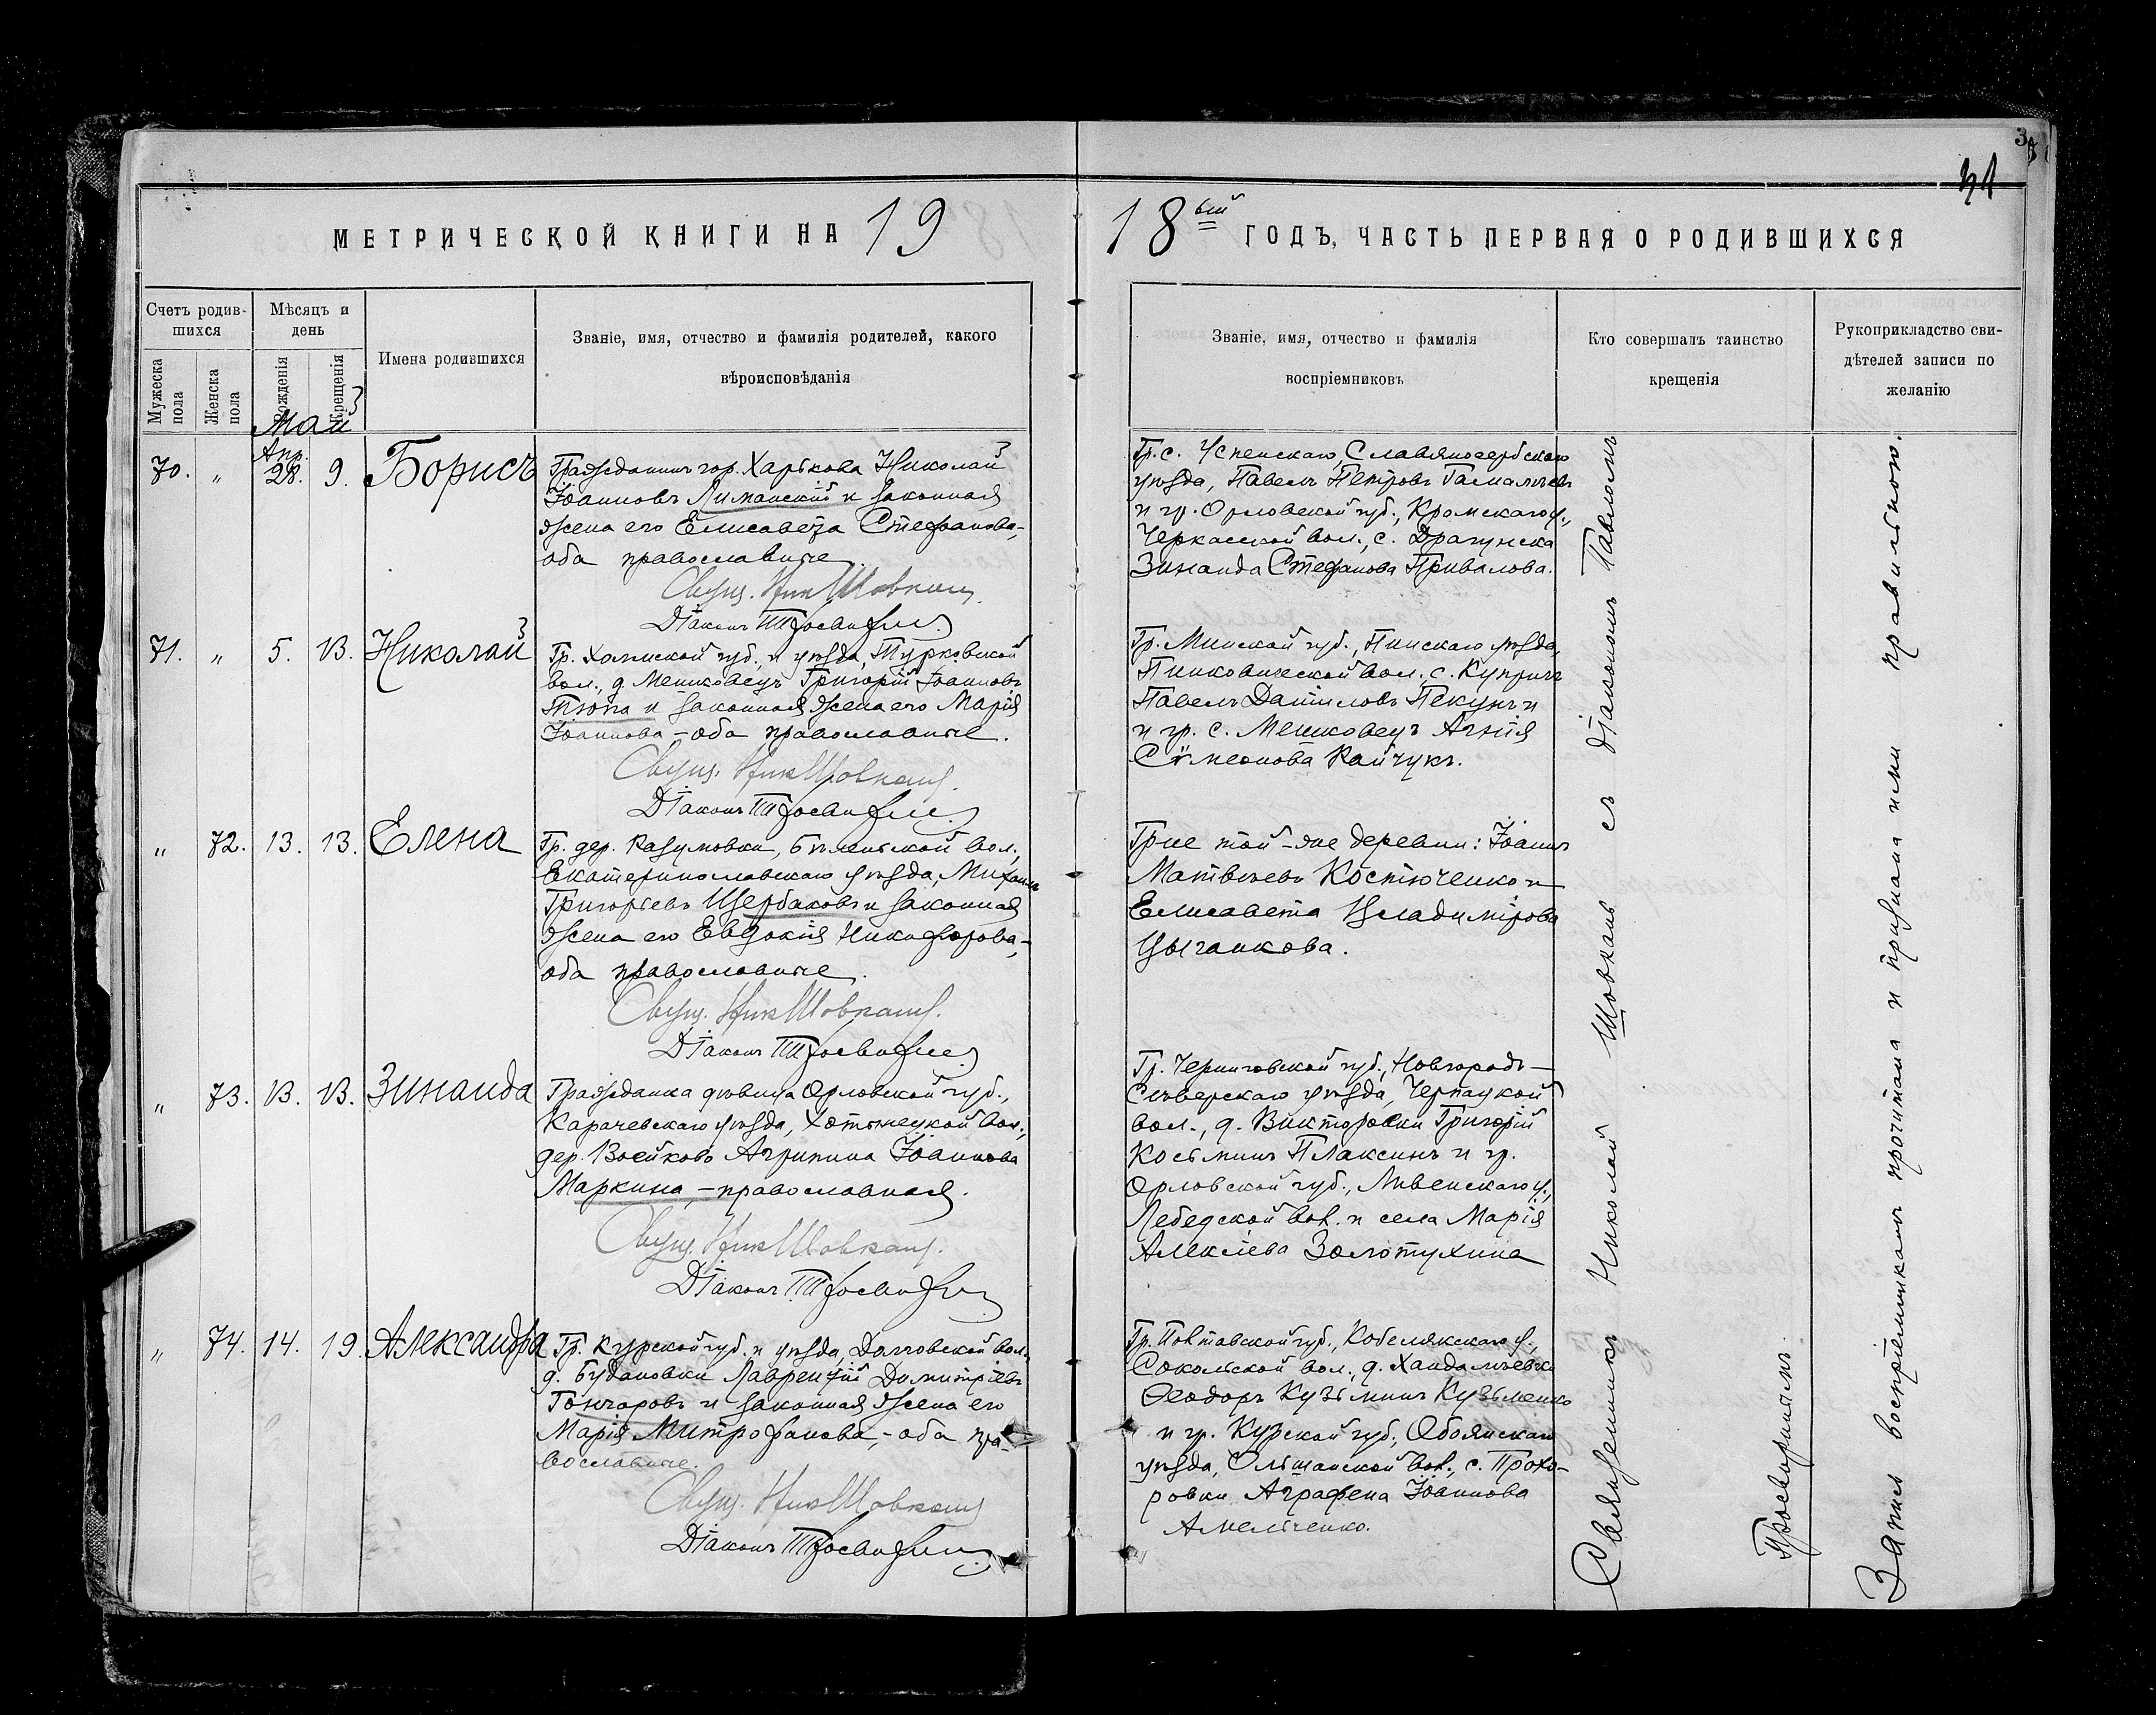 МЕТРИЧЕСКОЙ КНИГИ НА 19
18ый ГОДЪ, ЧАСТЬ ПЕРВАЯ О РОДИВШИХСЯ
Счетъ родив-
шихся
Мѣсяцъ и
день
Имена родившихся
Званіе, имя, отчество и фамилія родителей, какого
вѣроисповѣданія
Мужеска
пола
Женска
пола
Рожденія
Крещенія
Май
70. „ Апр. 28. 9. Борисъ
Гражданинъ гор. Харькова Николай
Іоанновъ Лиманскій и законная
жена его Елисавета Стефанова,-
оба православные.
Свущ. Ник Шовкань
Діаконъ
71. „ 5. 13. Николай
Гр. Холмской губ. и уѣзда, Турковской
вол., д. Мешковецъ Григорій Іоанновъ
Тюпа и законная жена его Марія
Іоаннова - оба православные.
Свущ. Ник Шовкань
Діаконъ
„ 72. 13. 13. Елена
Гр. дер. Разумовки, Бѣленькой вол.,
Екатеринославскаго уѣзда, Михаилъ
Григорьевъ Щербаковъ и законная
жена его Евдокія Никифорова,-
оба православные.
Свущ. Ник Шовкань
Діаконъ
„ 73. 13. 13. Зинаида
Гражданка дѣвица Орловской губ.,
Карачевскаго уѣзда, Хотынецкой вол.,
дер. Воейково Агрипина Іоаннова
Маркина,-православная.
Свущ. Ник Шовкань
Діаконъ
„ 74. 14. 19. Александра
Гр. Курской губ. и уѣзда, Долговской вол.,
д. Будановки Лаврентій Димитріевъ
Гончаровъ и законная жена его
Марія Митрофанова,- оба пра-
вославные.
Свущ. Ник Шовкань
Діаконъ
Званіе, имя, отчество и фамилія
воспріемниковъ
Кто совершалъ таинство
крещенія
Рукоприкладство сви-
дѣтелей записи по
желанію
Гр. с. Успенскаго, Славяносербскаго
уѣзда, Павелъ Петровъ Гамалѣевъ
и гр. Орловской губ., Кромскаго у.,
Черкасской вол., с. Драгунска
Зинаида Стефанова Привалова.
Гр. Минской губ., Пинскаго уѣзда,
Пинковической вол., с. Купричъ
Павелъ Даніиловъ Пекунъ и
и гр. с. Мешковецъ Агнія
Сѵмеонова Кайчукъ.
Гр-не той-же деревни: Іоаннъ
Матвѣевъ Костюченко и
Елисавета Владимірова
Цыганкова.
Гр. Черниговской губ., Новгородъ-
Сѣверскаго уѣзда, Чертацкой
вол., д. Викторовки Григорій
Косьминъ Плаксинъ и гр.
Орловской губ., Ливенскаго у.,
Лебедской вол. и села Марія
Алексіева Золотухина
Гр. Полтавской губ., Кобелякскаго у.,
Сокольской вол., д. Хандалѣевки
Ѳеодоръ Кузьминъ Кузьменко
и гр. Курской губ., Обоянскаго
уѣзда, Ольшанской вол., с. Прохо-
ровки Аграфена Іоаннова
Амельченко.
Священникъ Николай Шовкань съ діакономъ Павломъ
Просвирнинымъ.
Запись воспріемникамъ прочитана и признана ими правильною.